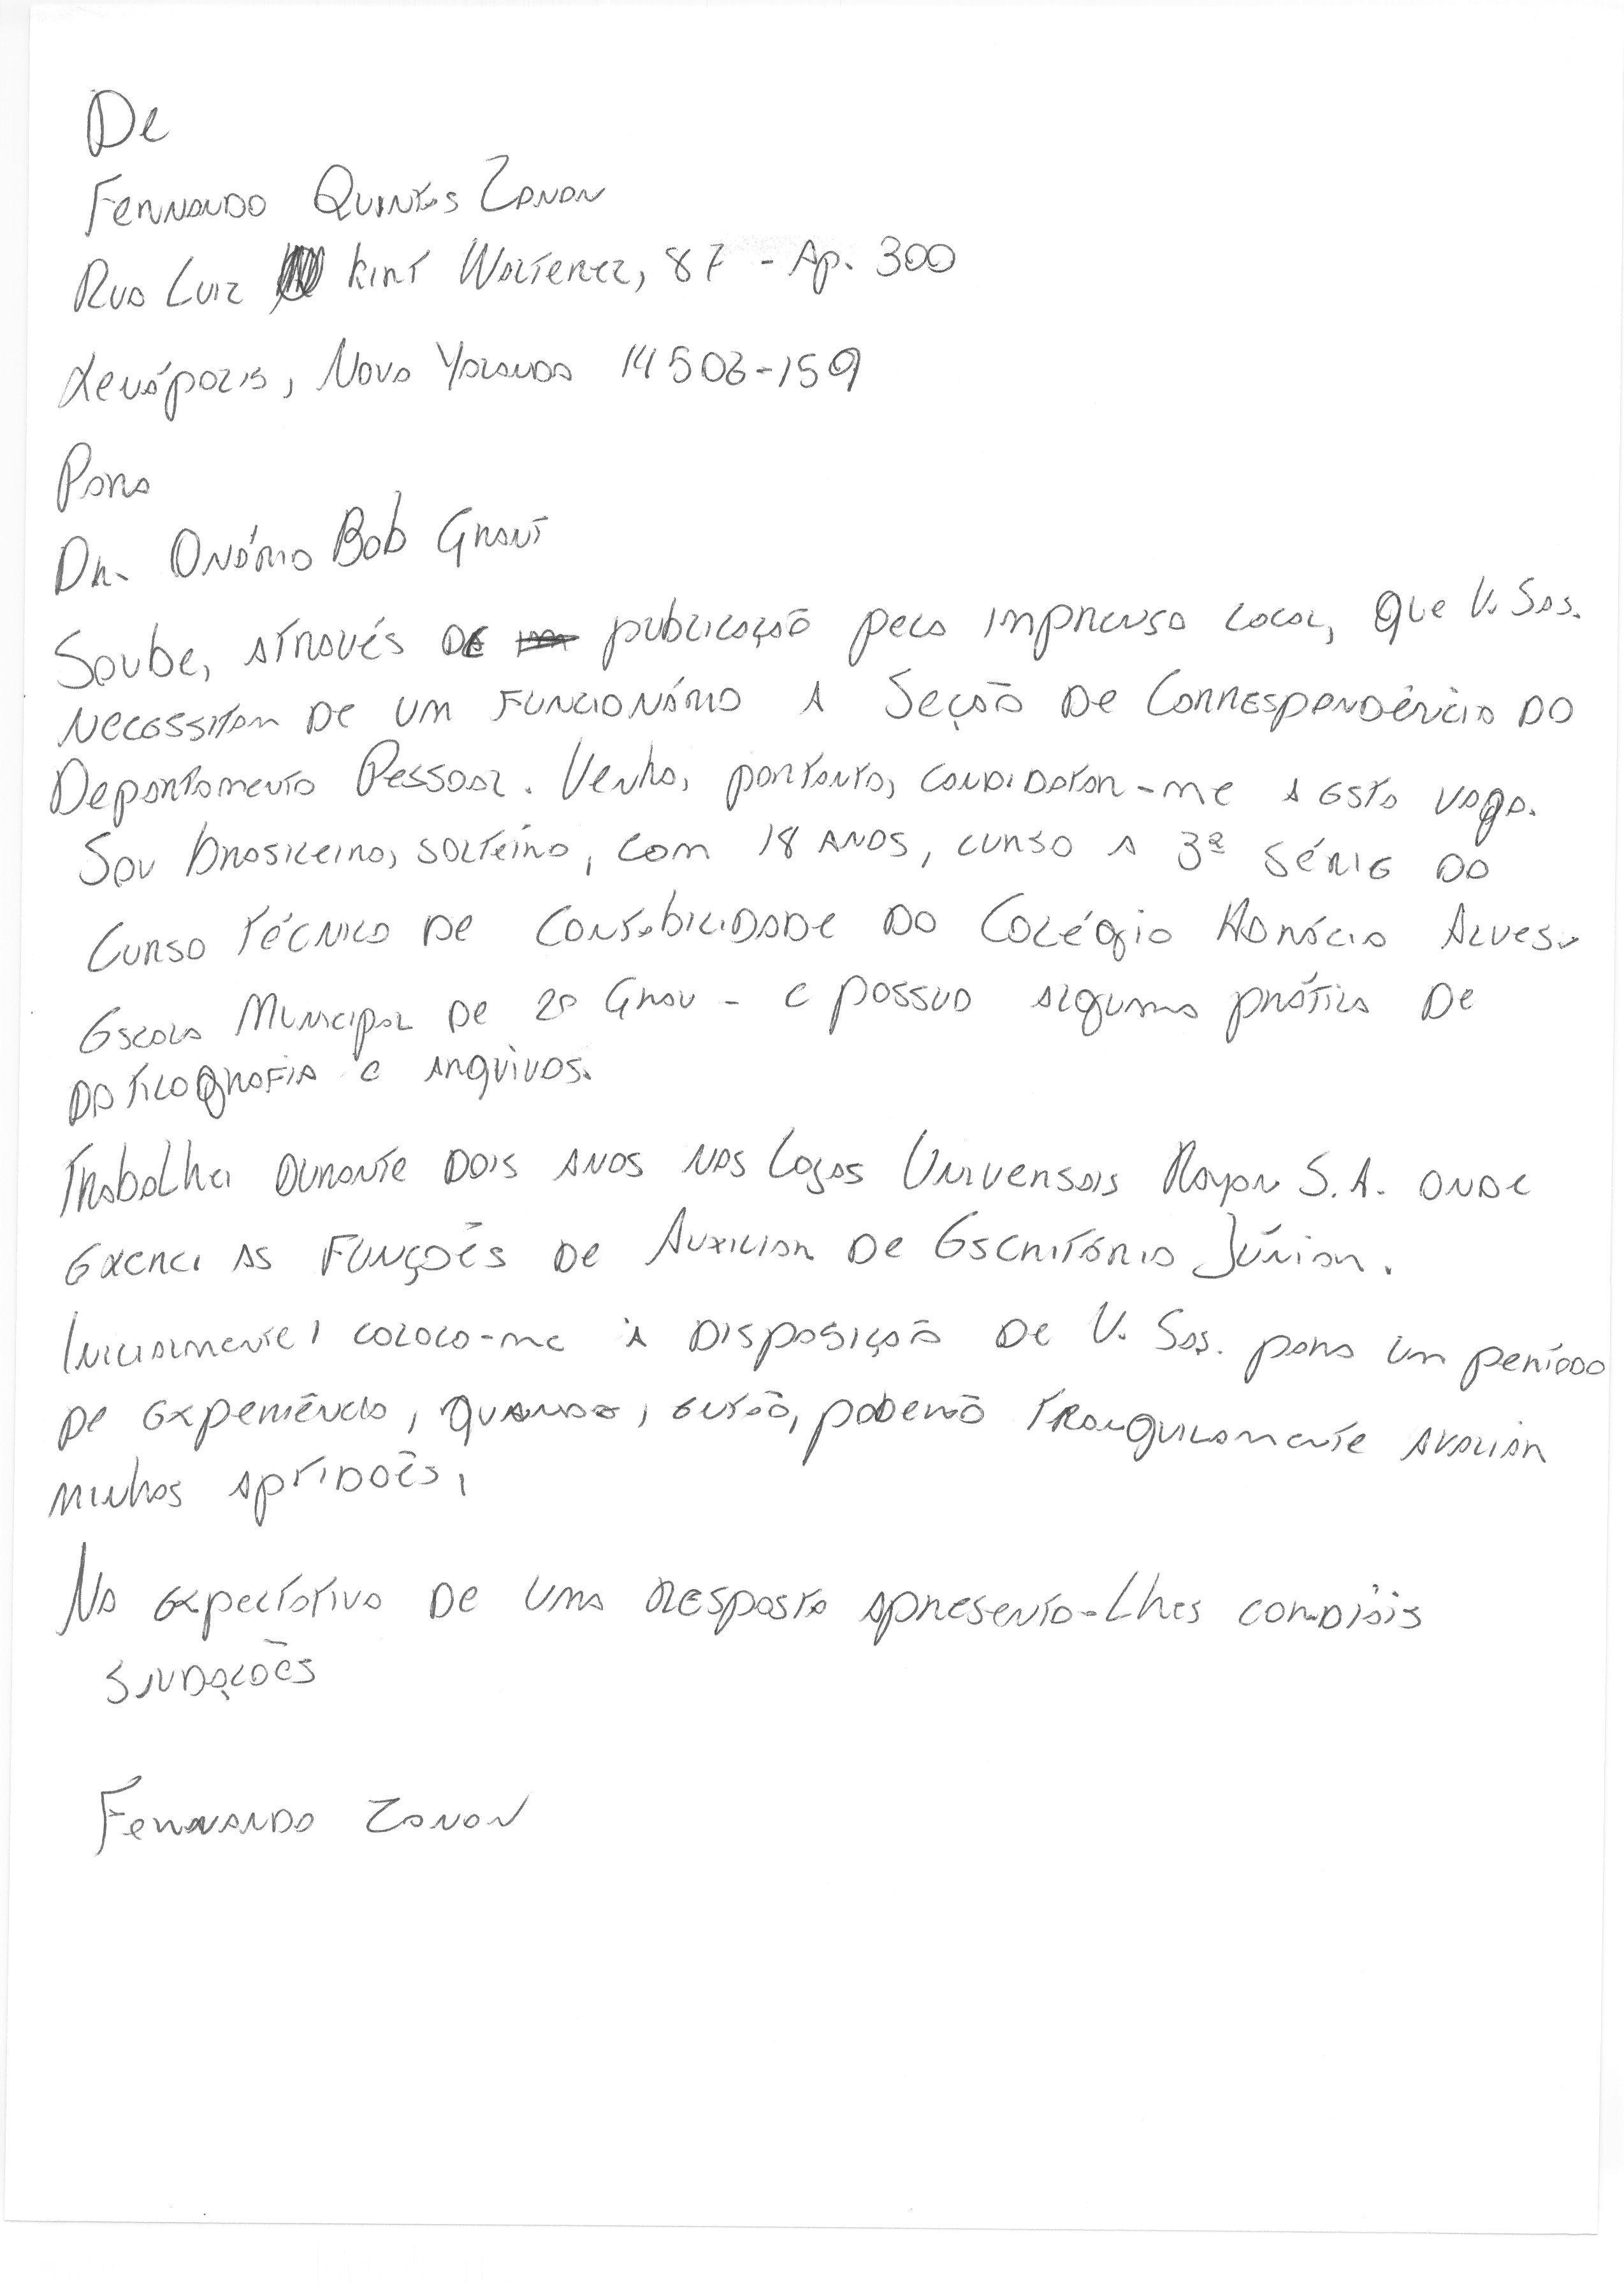 De
Fernando Quintes Zanon
Rua Luiz Kint Walterez, 87 - Ap. 300
Xenápolis, Nova Yolanda 14503-159
Para
Dr. Onório Bob Grant
Soube, através de publicação pela imprensa local, que V. Sas.
necessitam de um funcionário a Seção de Correspondência do
Departamento Pessoal. Venho, portanto, candidatar-me a esta vaga.
Sou brasileiro, solteiro, com 18 anos, curso a 3ª série do
Curso Técnico de Contabilidade do Colégio Horácio Alves -
Escola Municipal de 2º Grau - e possuo alguma prática de
datilografia e arquivos.
Trabalhei durante dois anos nas Lojas Universais Rayon S.A. onde
exerci as funções de Auxiliar de Escritório Júnior.
Inicialmente, coloco-me à disposição de V. Sas. para um período
de experiência, quando, então, poderão tranquilamente avaliar
minhas aptidões,
Na expectativa de uma resposta apresento-lhes cordiais
saudações
Fernando Zanon